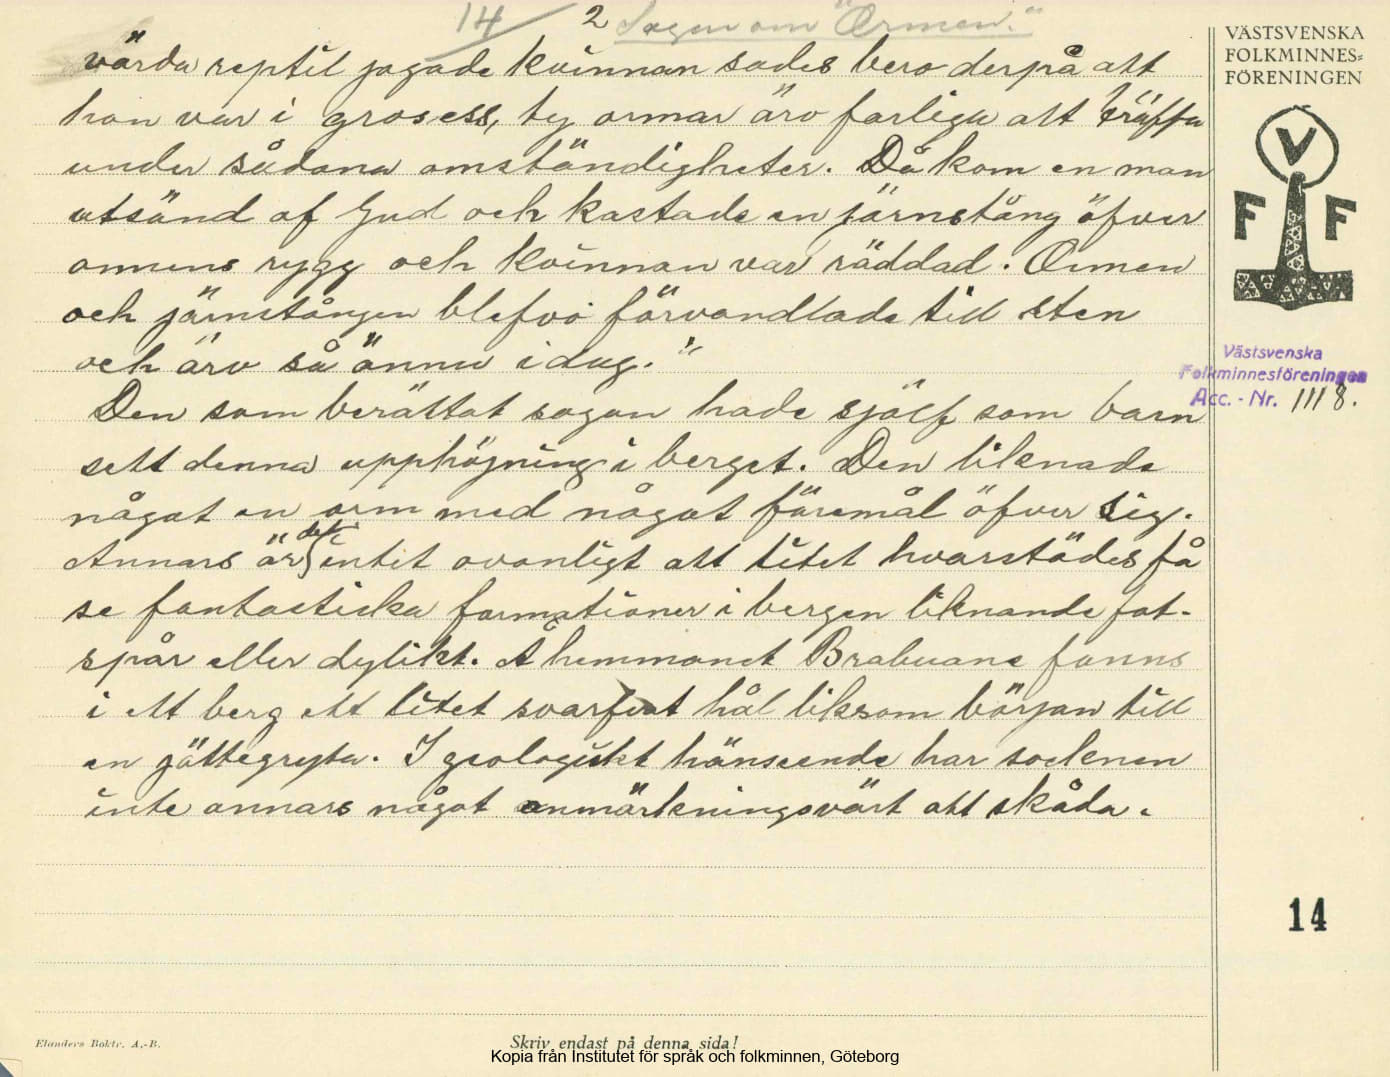 14 2 Sagan om "Ormen."
värda reptil jagade kvinnan sades bero derpå att
hon var i grosess, ty ormar äro farliga att träffa
under sådana omständigheter. Då kom en man
utsänd af Gud och kastade en järnstång öfver
ormens rygg och kvinnan var räddad. Ormen
och järnstången blefvo förvandlade till sten
och äro så ännu i dag."
Den som berättat sagan hade själf som barn
sett denna upphöjning i berget. Den liknade
något en orm med något föremål öfver sig.
Annars är det intet ovanligt att litet hvarstädes få
se fantastiska formationer i bergen liknande fot-
spår eller dylikt. Å hemmanet Brabuane fanns
i ett berg ett litet svarfvat hål liksom början till
en jättegryta. I geologiskt hänseende har socknen
inte annars något anmärkningsvärt att skåda.
VÄSTSVENSKA
FOLKMINNES=
FÖRENINGEN
V
F F
Västsvenska
Folkminnesföreningen
Acc. - Nr. 1118.
14
Elanders Boktr. A.-B.
Skriv endast på denna sida!
Kopia från Institutet för språk och folkminnen, Göteborg